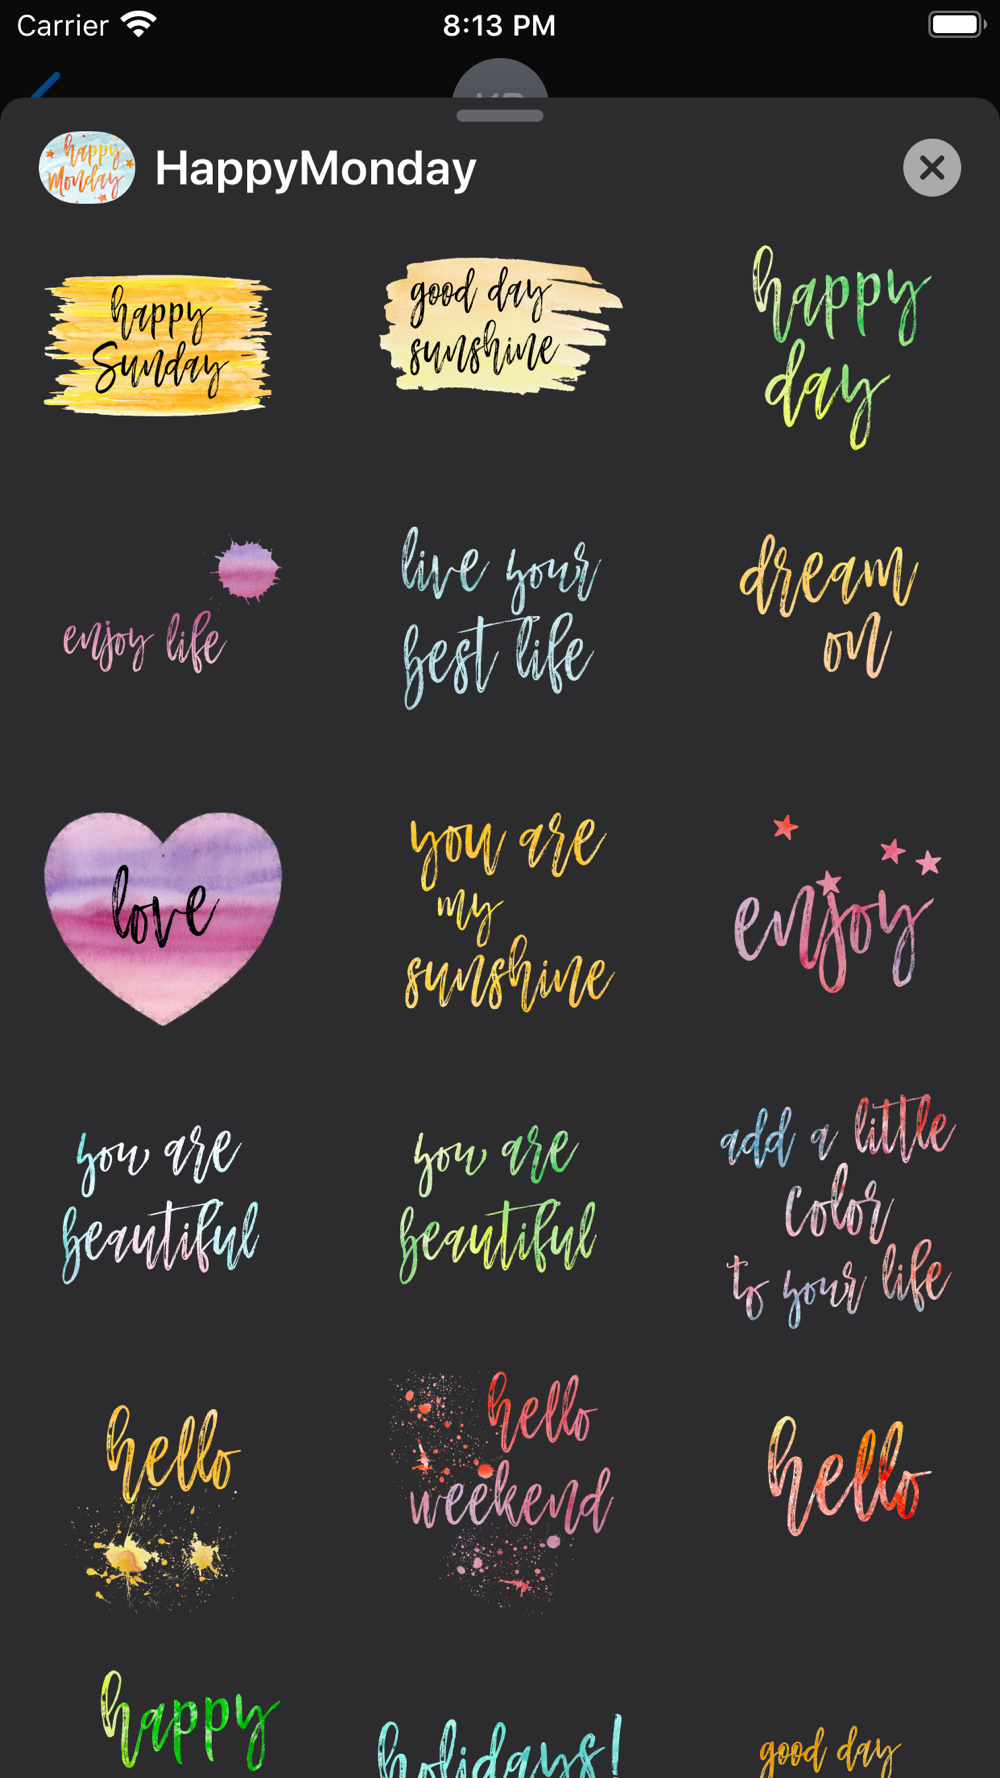 Carrier
8:13 PM
happy
Monday
HappyMonday
happy
Sunday
good day
sunshine
happy
day
enjoy life
live your
best life
dream
on
love
you are
my
sunshine
enjoy
you are
beautiful
you are
beautiful
add a little
color
to your life
hello
hello
weekend
hello
happy
holidays!
good day